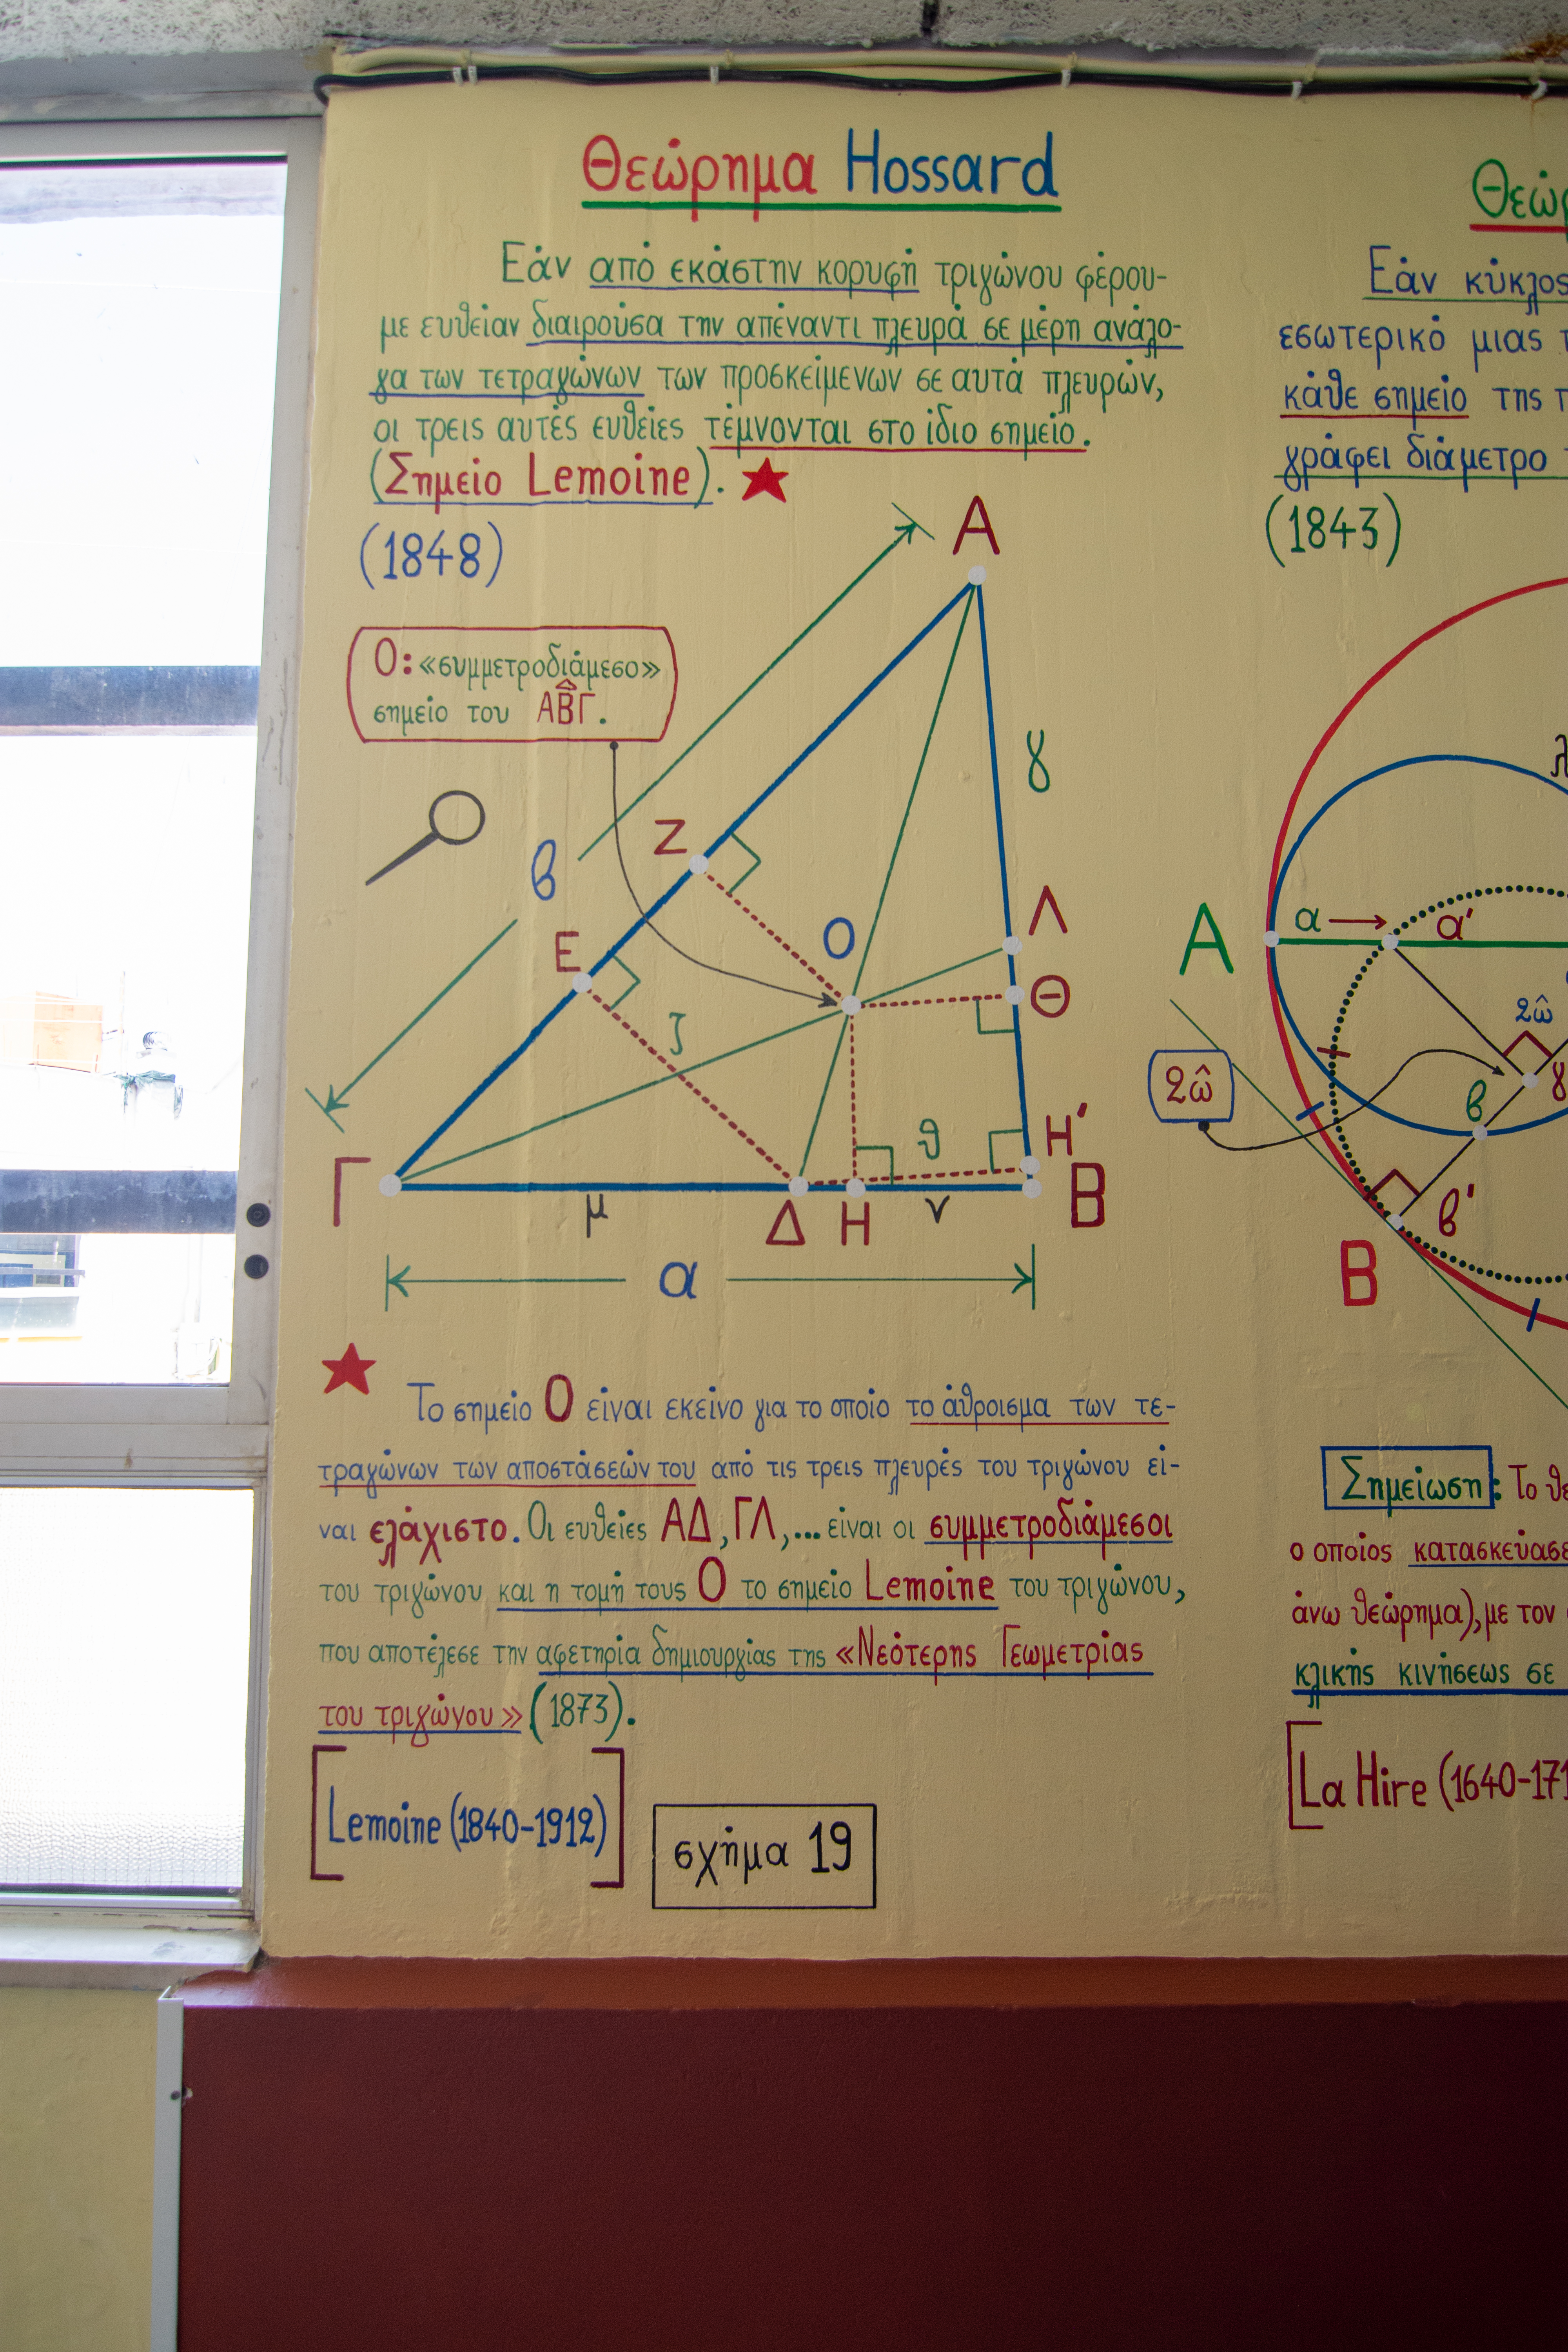 Θεώρημα Hossard
Εάν από εκάστην κορυφή τριγώνου φέρου-
με ευθείαν διαιρούσα την απέναντι πλευρά σε μέρη ανάλο-
γα των τετραγώνων των προσκείμενων σε αυτά πλευρών,
οι τρεις αυτές ευθείες τέμνονται στο ίδιο σημείο.
(Σημείο Lemoine).
(1848)
Ο: «συμμετροδιάμεσο»
σημείο του ΑΒΓ.
Α
γ
Ζ
β
Ε
Ο
Λ
Θ
ζ
θ
Η'
Γ
μ
Δ
Η
ν
Β
α
Το σημείο Ο είναι εκείνο για το οποίο το άθροισμα των τε-
τραγώνων των αποστάσεών του από τις τρεις πλευρές του τριγώνου εί-
ναι ελάχιστο. Οι ευθείες ΑΔ, ΓΛ,... είναι οι συμμετροδιάμεσοι
του τριγώνου και η τομή τους Ο το σημείο Lemoine του τριγώνου,
που αποτέλεσε την αφετηρία δημιουργίας της «Νεότερης Γεωμετρίας
του τριγώνου» (1873).
[Lemoine (1840-1912)]
σχήμα 19
Εάν κύκλος
εσωτερικό μιας
κάθε σημείο της
γράφει διάμετρο
(1843)
λ
Α
α
α'
2ω̂
2ω̂
β
γ
β'
Β
Σημείωση: Το
ο οποίος
άνω θεώρημα), με τον
κλικής κινήσεως σε
[La Hire (1640-171